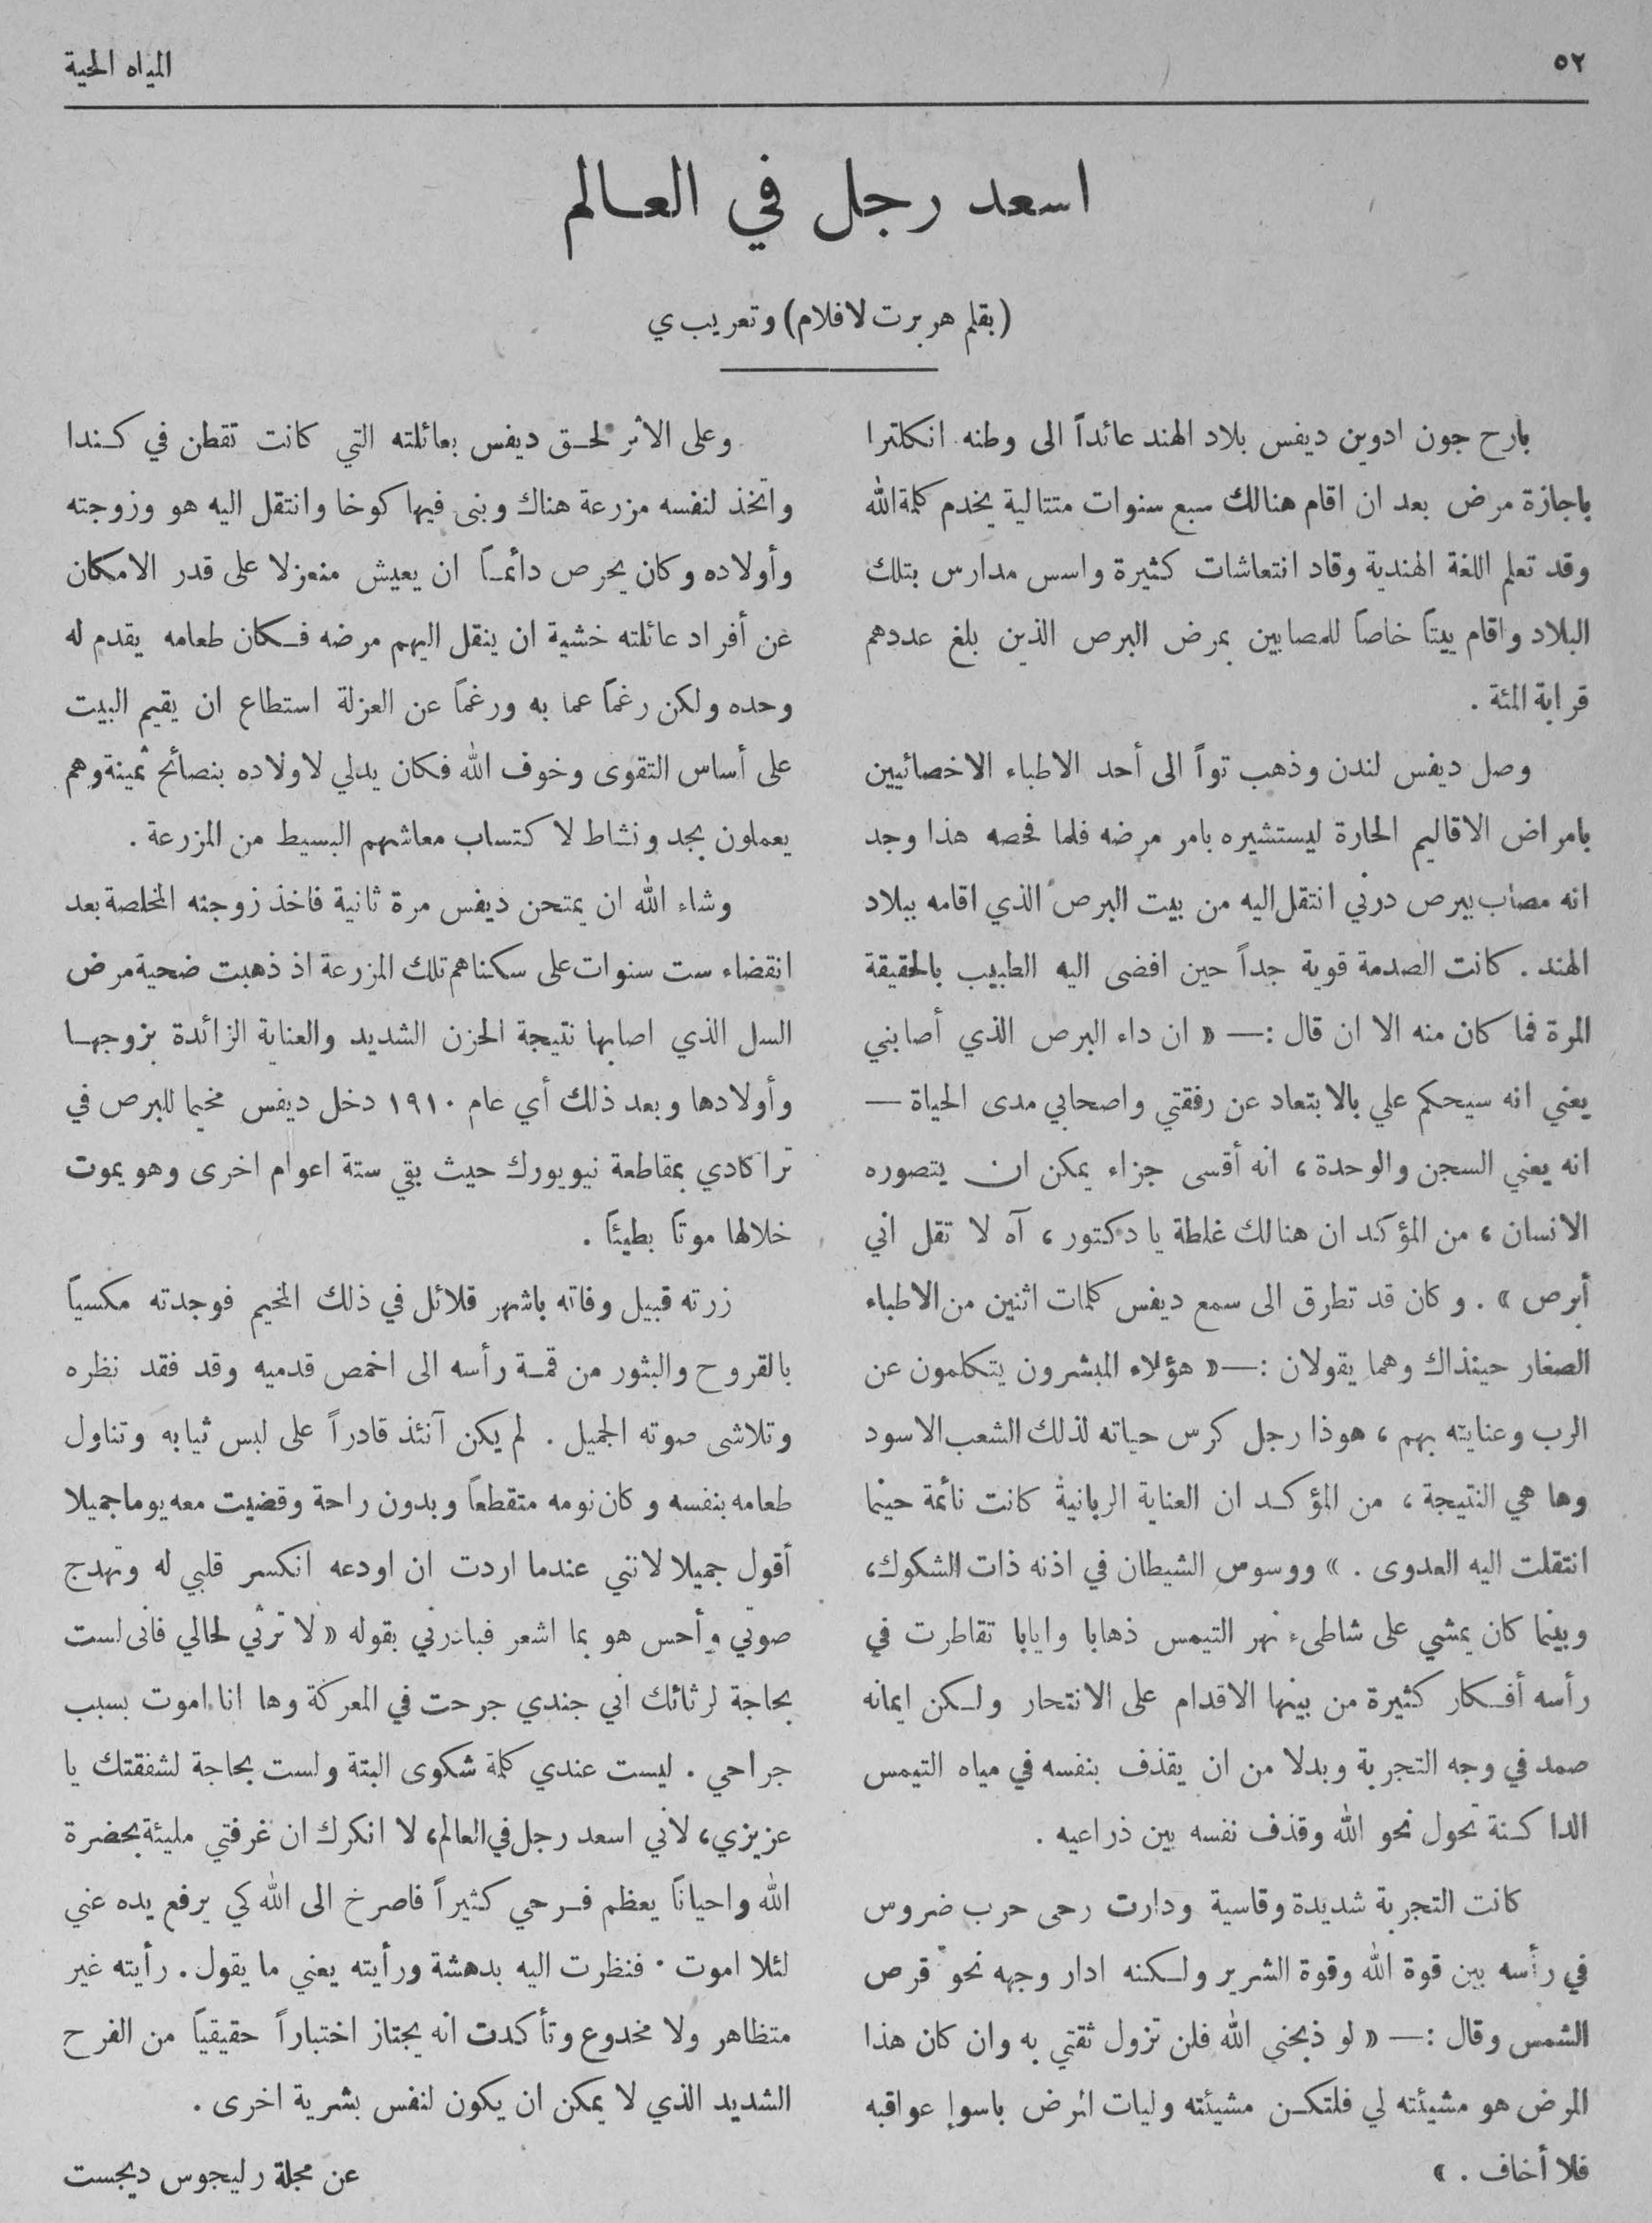 ٥٢
المياه الحية
اسعد رجل في العالم
(بقلم هربرت لافلام) وتعريب ي
بارح جون ادوين ديفس بلاد الهند عائداً الى وطنه انكلترا
باجازة مرض بعد ان اقام هنالك سبع سنوات متتالية يخدم كلمة الله
وقد تعلم اللغة الهندية وقاد انتعاشات كثيرة واسس مدارس بتلك
البلاد واقام بيتاً خاصاً للمصابين بمرض البرص الذين بلغ عددهم
قرابة المئة .
وصل ديفس لندن وذهب تواً الى أحد الاطباء الاخصائيين
بامراض الاقاليم الحارة ليستشيره بامر مرضه فلما فحصه هذا وجد
انه مصاب ببرص درني انتقل اليه من بيت البرص الذي اقامه ببلاد
الهند . كانت الصدمة قوية جداً حين افضى اليه الطبيب بالحقيقة
المرة فما كان منه الا ان قال :— « ان داء البرص الذي أصابني
يعني انه سيحكم علي بالابتعاد عن رفقتي واصحابي مدى الحياة —
انه يعني السجن والوحدة ، انه أقسى جزاء يمكن ان يتصوره
الانسان ، من المؤكد ان هنالك غلطة يا دكتور ، آه لا تقل اني
أبرص » . وكان قد تطرق الى سمع ديفس كلمات اثنين من الاطباء
الصغار حينذاك وهما يقولان :— « هؤلاء المبشرون يتكلمون عن
الرب وعنايته بهم ، هوذا رجل كرس حياته لذلك الشعب الاسود
وها هي النتيجة ، من المؤكد ان العناية الربانية كانت نائمة حينما
انتقلت اليه العدوى . » ووسوس الشيطان في اذنه ذات الشكوك ،
وبينما كان يمشي على شاطىء نهر التيمس ذهابا وايابا تقاطرت في
رأسه أفكار كثيرة من بينها الاقدام على الانتحار ولكن ايمانه
صمد في وجه التجربة وبدلا من ان يقذف بنفسه في مياه التيمس
الداكنة تحول نحو الله وقذف نفسه بين ذراعيه .
كانت التجربة شديدة وقاسية ودارت رحى حرب ضروس
في رأسه بين قوة الله وقوة الشرير ولكنه ادار وجهه نحو قرص
الشمس وقال :— « لو ذبحني الله فلن تزول ثقتي به وان كان هذا
المرض هو مشيئته لي فلتكن مشيئته وليات المرض باسوإ عواقبه
فلا أخاف . »
وعلى الاثر لحق ديفس بعائلته التي كانت تقطن في كندا
واتخذ لنفسه مزرعة هناك وبنى فيها كوخا وانتقل اليه هو وزوجته
وأولاده وكان يحرص دائماً ان يعيش منعزلا على قدر الامكان
عن أفراد عائلته خشية ان ينقل اليهم مرضه فكان طعامه يقدم له
وحده ولكن رغماً عما به ورغماً عن العزلة استطاع ان يقيم البيت
على أساس التقوى وخوف الله فكان يدلي لاولاده بنصائح ثمينة وهم
يعملون بجد ونشاط لاكتساب معاشهم البسيط من المزرعة .
وشاء الله ان يمتحن ديفس مرة ثانية فاخذ زوجته المخلصة بعد
انقضاء ست سنوات على سكناهم تلك المزرعة اذ ذهبت ضحية مرض
السل الذي اصابها نتيجة الحزن الشديد والعناية الزائدة بزوجها
وأولادها وبعد ذلك أي عام ١٩١٠ دخل ديفس مخيما للبرص في
تراكادي بمقاطعة نيويورك حيث بقي ستة اعوام اخرى وهو يموت
خلالها موتاً بطيئاً .
زرته قبيل وفاته باشهر قلائل في ذلك المخيم فوجدته مكسياً
بالقروح والبثور من قمة رأسه الى اخمص قدميه وقد فقد نظره
وتلاشى صوته الجميل . لم يكن آنئذ قادراً على لبس ثيابه وتناول
طعامه بنفسه وكان نومه متقطعاً وبدون راحة وقضيت معه يوما جميلا
أقول جميلا لانني عندما اردت ان اودعه انكسر قلبي له وتهدج
صوتي وأحس هو بما اشعر فبادرني بقوله « لا ترثي لحالي فاني لست
بحاجة لرثائك اني جندي جرحت في المعركة وها انا اموت بسبب
جراحي . ليست عندي كلمة شكوى البتة ولست بحاجة لشفقتك يا
عزيزي ، لاني اسعد رجل في العالم ، لا انكرك ان غرفتي مليئة بحضرة
الله واحياناً يعظم فرحي كثيراً فاصرخ الى الله كي يرفع يده عني
لئلا اموت . فنظرت اليه بدهشة ورأيته يعني ما يقول . رأيته غير
متظاهر ولا مخدوع وتأكدت انه يجتاز اختباراً حقيقياً من الفرح
الشديد الذي لا يمكن ان يكون لنفس بشرية اخرى .
عن مجلة رليجوس ديجست